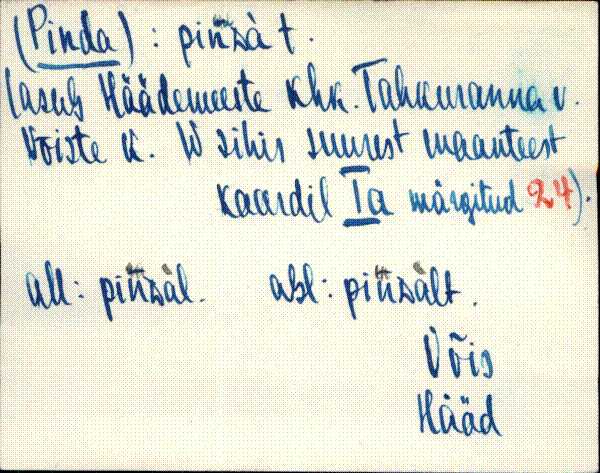 (Pinda) : pinzà t.
(asub Häädemeeste khk. Tahkuranna v.
Võiste k. W sihis suurest maanteest
kaardil Ia märgitud 24).
all: pinzàl. abl: pinzàlt.
Võis
Hääd